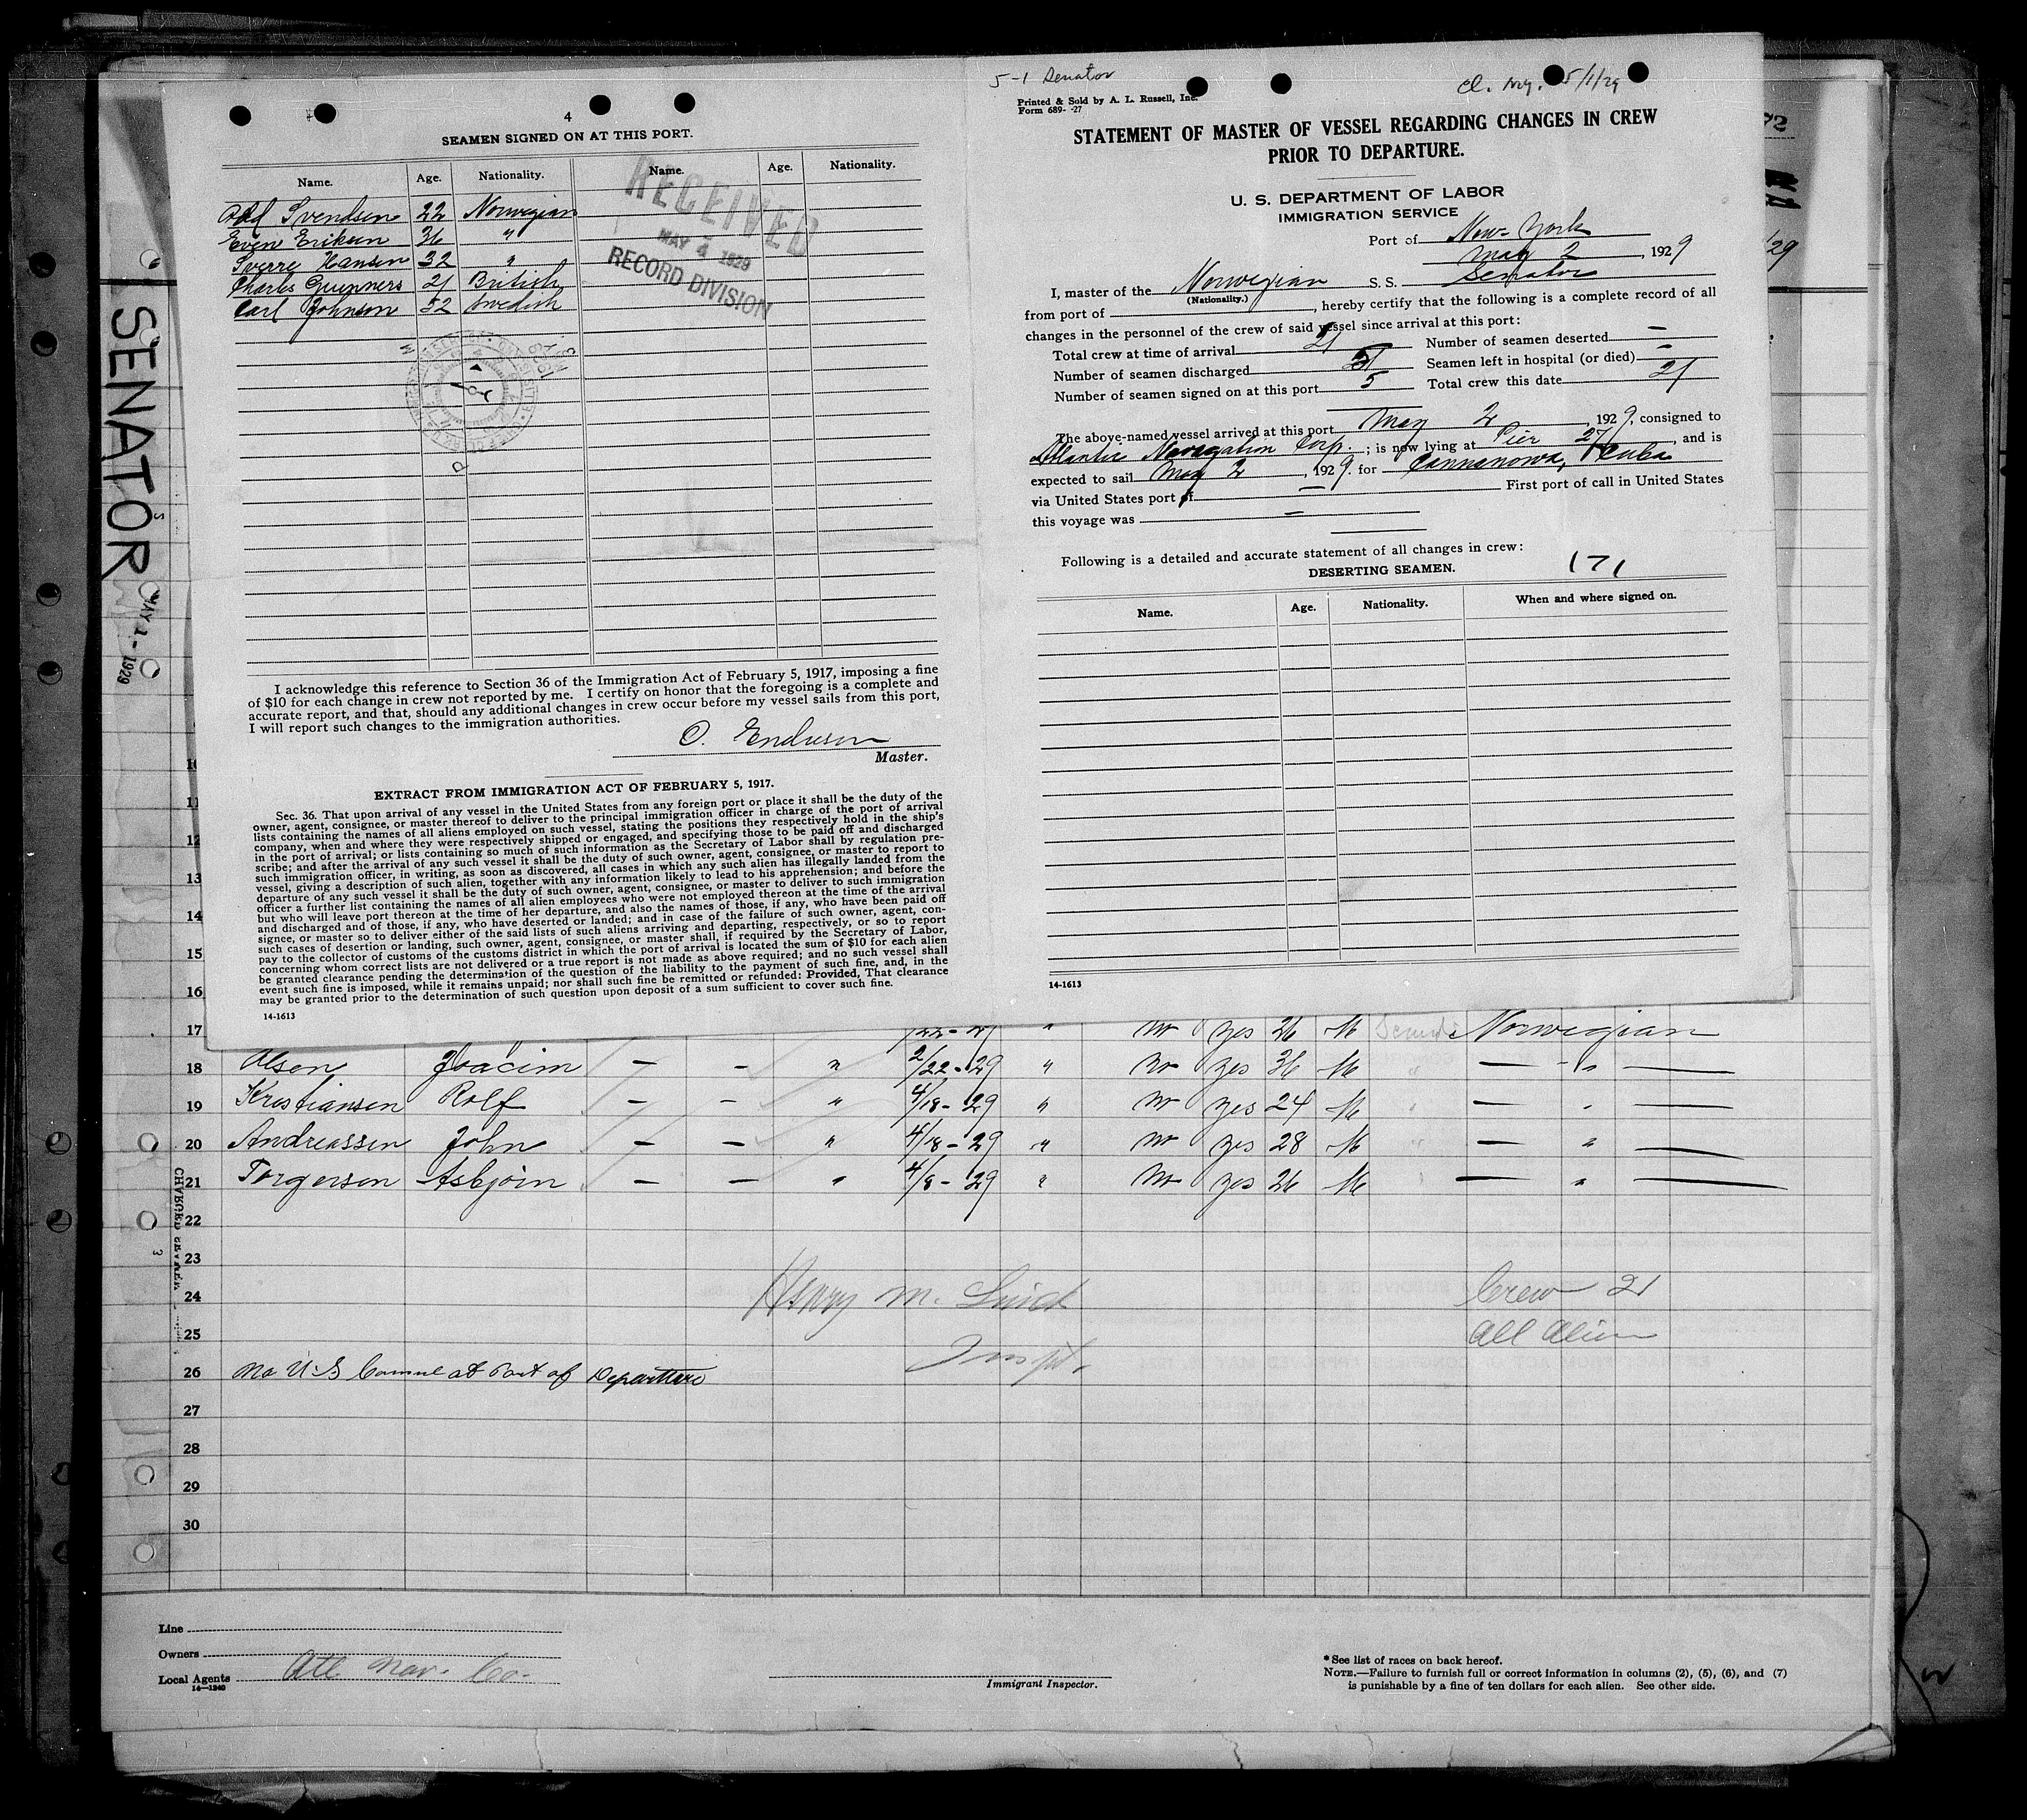 4
SEAMEN SIGNED ON AT THIS PORT.
Name. Age. Nationality. Name. Age. Nationality.
Odd Svendsen 22 Norwegian
Even Eriksen 36 "
Sverre Hansen 32 "
Charles Gunners 21 British
Carl Johnson 52 Swedish
RECEIVED
MAY 4 1929
RECORD DIVISION
I acknowledge this reference to Section 36 of the Immigration Act of February 5, 1917, imposing a fine
of $10 for each change in crew not reported by me. I certify on honor that the foregoing is a complete and
accurate report, and that, should any additional changes in crew occur before my vessel sails from this port,
I will report such changes to the immigration authorities.
O.
Master.
EXTRACT FROM IMMIGRATION ACT OF FEBRUARY 5, 1917.
Sec. 36. That upon arrival of any vessel in the United States from any foreign port or place it shall be the duty of the
owner, agent, consignee, or master thereof to deliver to the principal immigration officer in charge of the port of arrival
lists containing the names of all aliens employed on such vessel, stating the positions they respectively hold in the ship's
company, when and where they were respectively shipped or engaged, and specifying those to be paid off and discharged
in the port of arrival; or lists containing so much of such information as the Secretary of Labor shall by regulation pre-
scribe; and after the arrival of any such vessel it shall be the duty of such owner, agent, consignee, or master to report to
such immigration officer, in writing, as soon as discovered, all cases in which any such alien has illegally landed from the
vessel, giving a description of such alien, together with any information likely to lead to his apprehension; and before the
departure of any such vessel it shall be the duty of such owner, agent, consignee, or master to deliver to such immigration
officer a further list containing the names of all alien employees who were not employed thereon at the time of the arrival
but who will leave port thereon at the time of her departure, and also the names of those, if any, who have been paid off
and discharged and of those, if any, who have deserted or landed; and in case of the failure of such owner, agent, con-
signee, or master so to deliver either of the said lists of such aliens arriving and departing, respectively, or so to report
such cases of desertion or landing, such owner, agent, consignee, or master shall, if required by the Secretary of Labor,
pay to the collector of customs of the customs district in which the port of arrival is located the sum of $10 for each alien
concerning whom correct lists are not delivered or a true report is not made as above required; and no such vessel shall
be granted clearance pending the determination of the question of the liability to the payment of such fine, and, in the
event such fine is imposed, while it remains unpaid; nor shall such fine be remitted or refunded: Provided, That clearance
may be granted prior to the determination of such question upon deposit of a sum sufficient to cover such fine.
14-1613
5-1 Senator
5/1/29
Printed & Sold by A. L. Russell, Inc.
Form 689- -27
STATEMENT OF MASTER OF VESSEL REGARDING CHANGES IN CREW
PRIOR TO DEPARTURE.
U. S. DEPARTMENT OF LABOR
IMMIGRATION SERVICE
Port of New York
May 2, 1929
I, master of the Norwegian S. S. Senator
(Nationality.)
from port of , hereby certify that the following is a complete record of all
changes in the personnel of the crew of said vessel since arrival at this port:
Total crew at time of arrival 21 Number of seamen deserted —
Number of seamen discharged 5 Seamen left in hospital (or died) —
Number of seamen signed on at this port 5 Total crew this date 21
The above-named vessel arrived at this port May 2, 1929, consigned to
Atlantic Navigation Corp. ; is now lying at Pier 27, and is
expected to sail May 2, 1929. for Cuba
via United States port of — First port of call in United States
this voyage was —
Following is a detailed and accurate statement of all changes in crew:
171
DESERTING SEAMEN.
Name. Age. Nationality. When and where signed on.
14-1613
SENATOR
MAY 1 - 1929
10
11
12
13
14
15
16
17 no yes 26 M Norwegian
18 Olsen Joacim — — " 2/22-29 " no yes 36 M — " —
19 Kristiansen Rolf — — " 4/18-29 " no yes 24 M — " —
20 Andreassen John — — " 4/18-29 " no yes 28 M — " —
21 Torgersen Asbjorn — — " 4/8-29 " no yes 26 M — " —
22
23
24 Henry M. Crew 21
25 Inspt. All Alien
26 No U S Consul at Port of Departure
27
28
29
30
Line
Owners
Local Agents Atl. Nav. Co.
14—1240
Immigrant Inspector.
* See list of races on back hereof.
NOTE.—Failure to furnish full or correct information in columns (2), (5), (6), and (7)
is punishable by a fine of ten dollars for each alien. See other side.